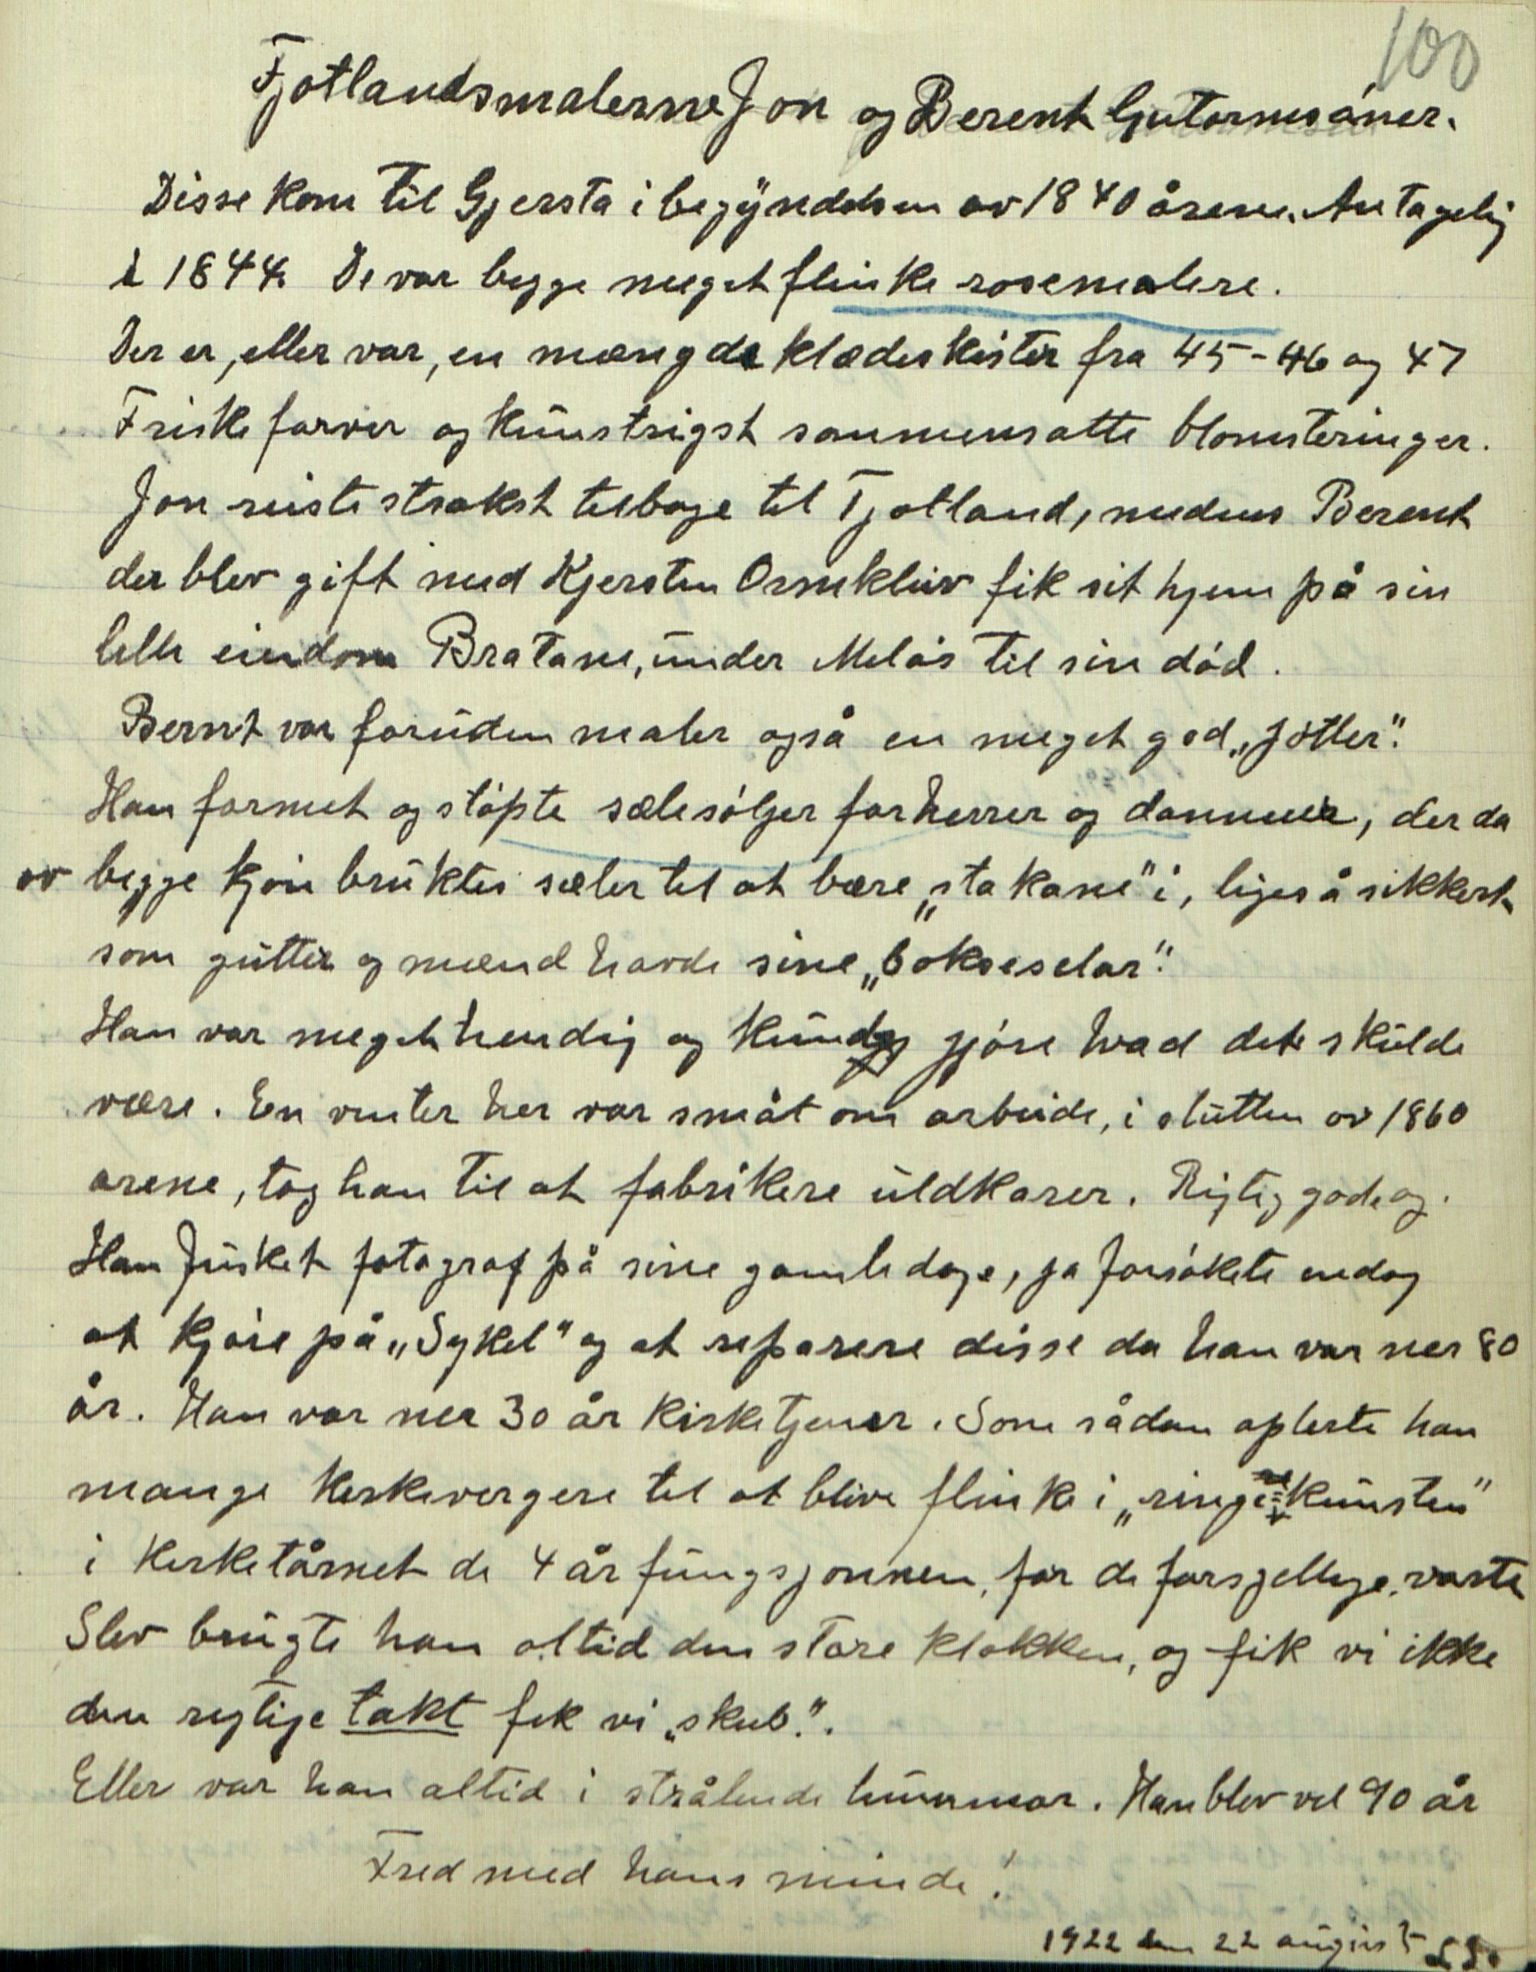 100
Fjotlandsmalerne Jon og Berent Gutormsøner.
Disse kom til Gjersta i begyndelsen av 1840 årene. Antagelig
i 1844. De var begge meget flinke rosemalere.
Der er, eller var, en mængde klædeskister fra 45-46 og 47
Friske farver og kunstrigst sammensatte blomsteringer.
Jon reiste strakst tilbage til Fjotland, medens Berent
der blev gift med Kjersten Ormkleiv fik sit hjem på sin
lille eiendom Bratane, under Melås til sin død.
Bernt var foruden maler også en meget god „Jøtler".
Han formet og støpte sælesøljer for herrer og dammer, der da
av begge kjøn bruktes sæler til at bære „stakane" i, ligeså sikkert
som gutter og mænd havde sine „bokseselar".
Han var meget hendig og kunde gjøre hvad det skulde
være. En vinter her var småt om arbeide, i slutten av 1860
arene, tog han til at fabrikere uldkarer. Rigtig gode og.
Han fusket fotograf på sine gamle dage, ja forsøkte endog
at kjøre på „Sykel" og at reparere disse da han var nær 80
år. Han var nær 30 år kirketjener. Som sådan oplerte han
mange kirkevergere til at blive flinke i „ringekunsten"
i kirketårnet de 4 år fungsjonnen, for de forsjellige, varte
Slev brugte han altid den store klokken, og fik vi ikke
den regtige takt fik vi „skub".
Eller var han altid i strålende hummør. Han blev vel 90 år
Fred med hans minde!
1922 den 22 august